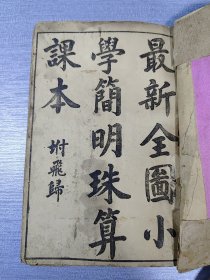 最新全圖小
學簡明珠算
課本 坿飛歸